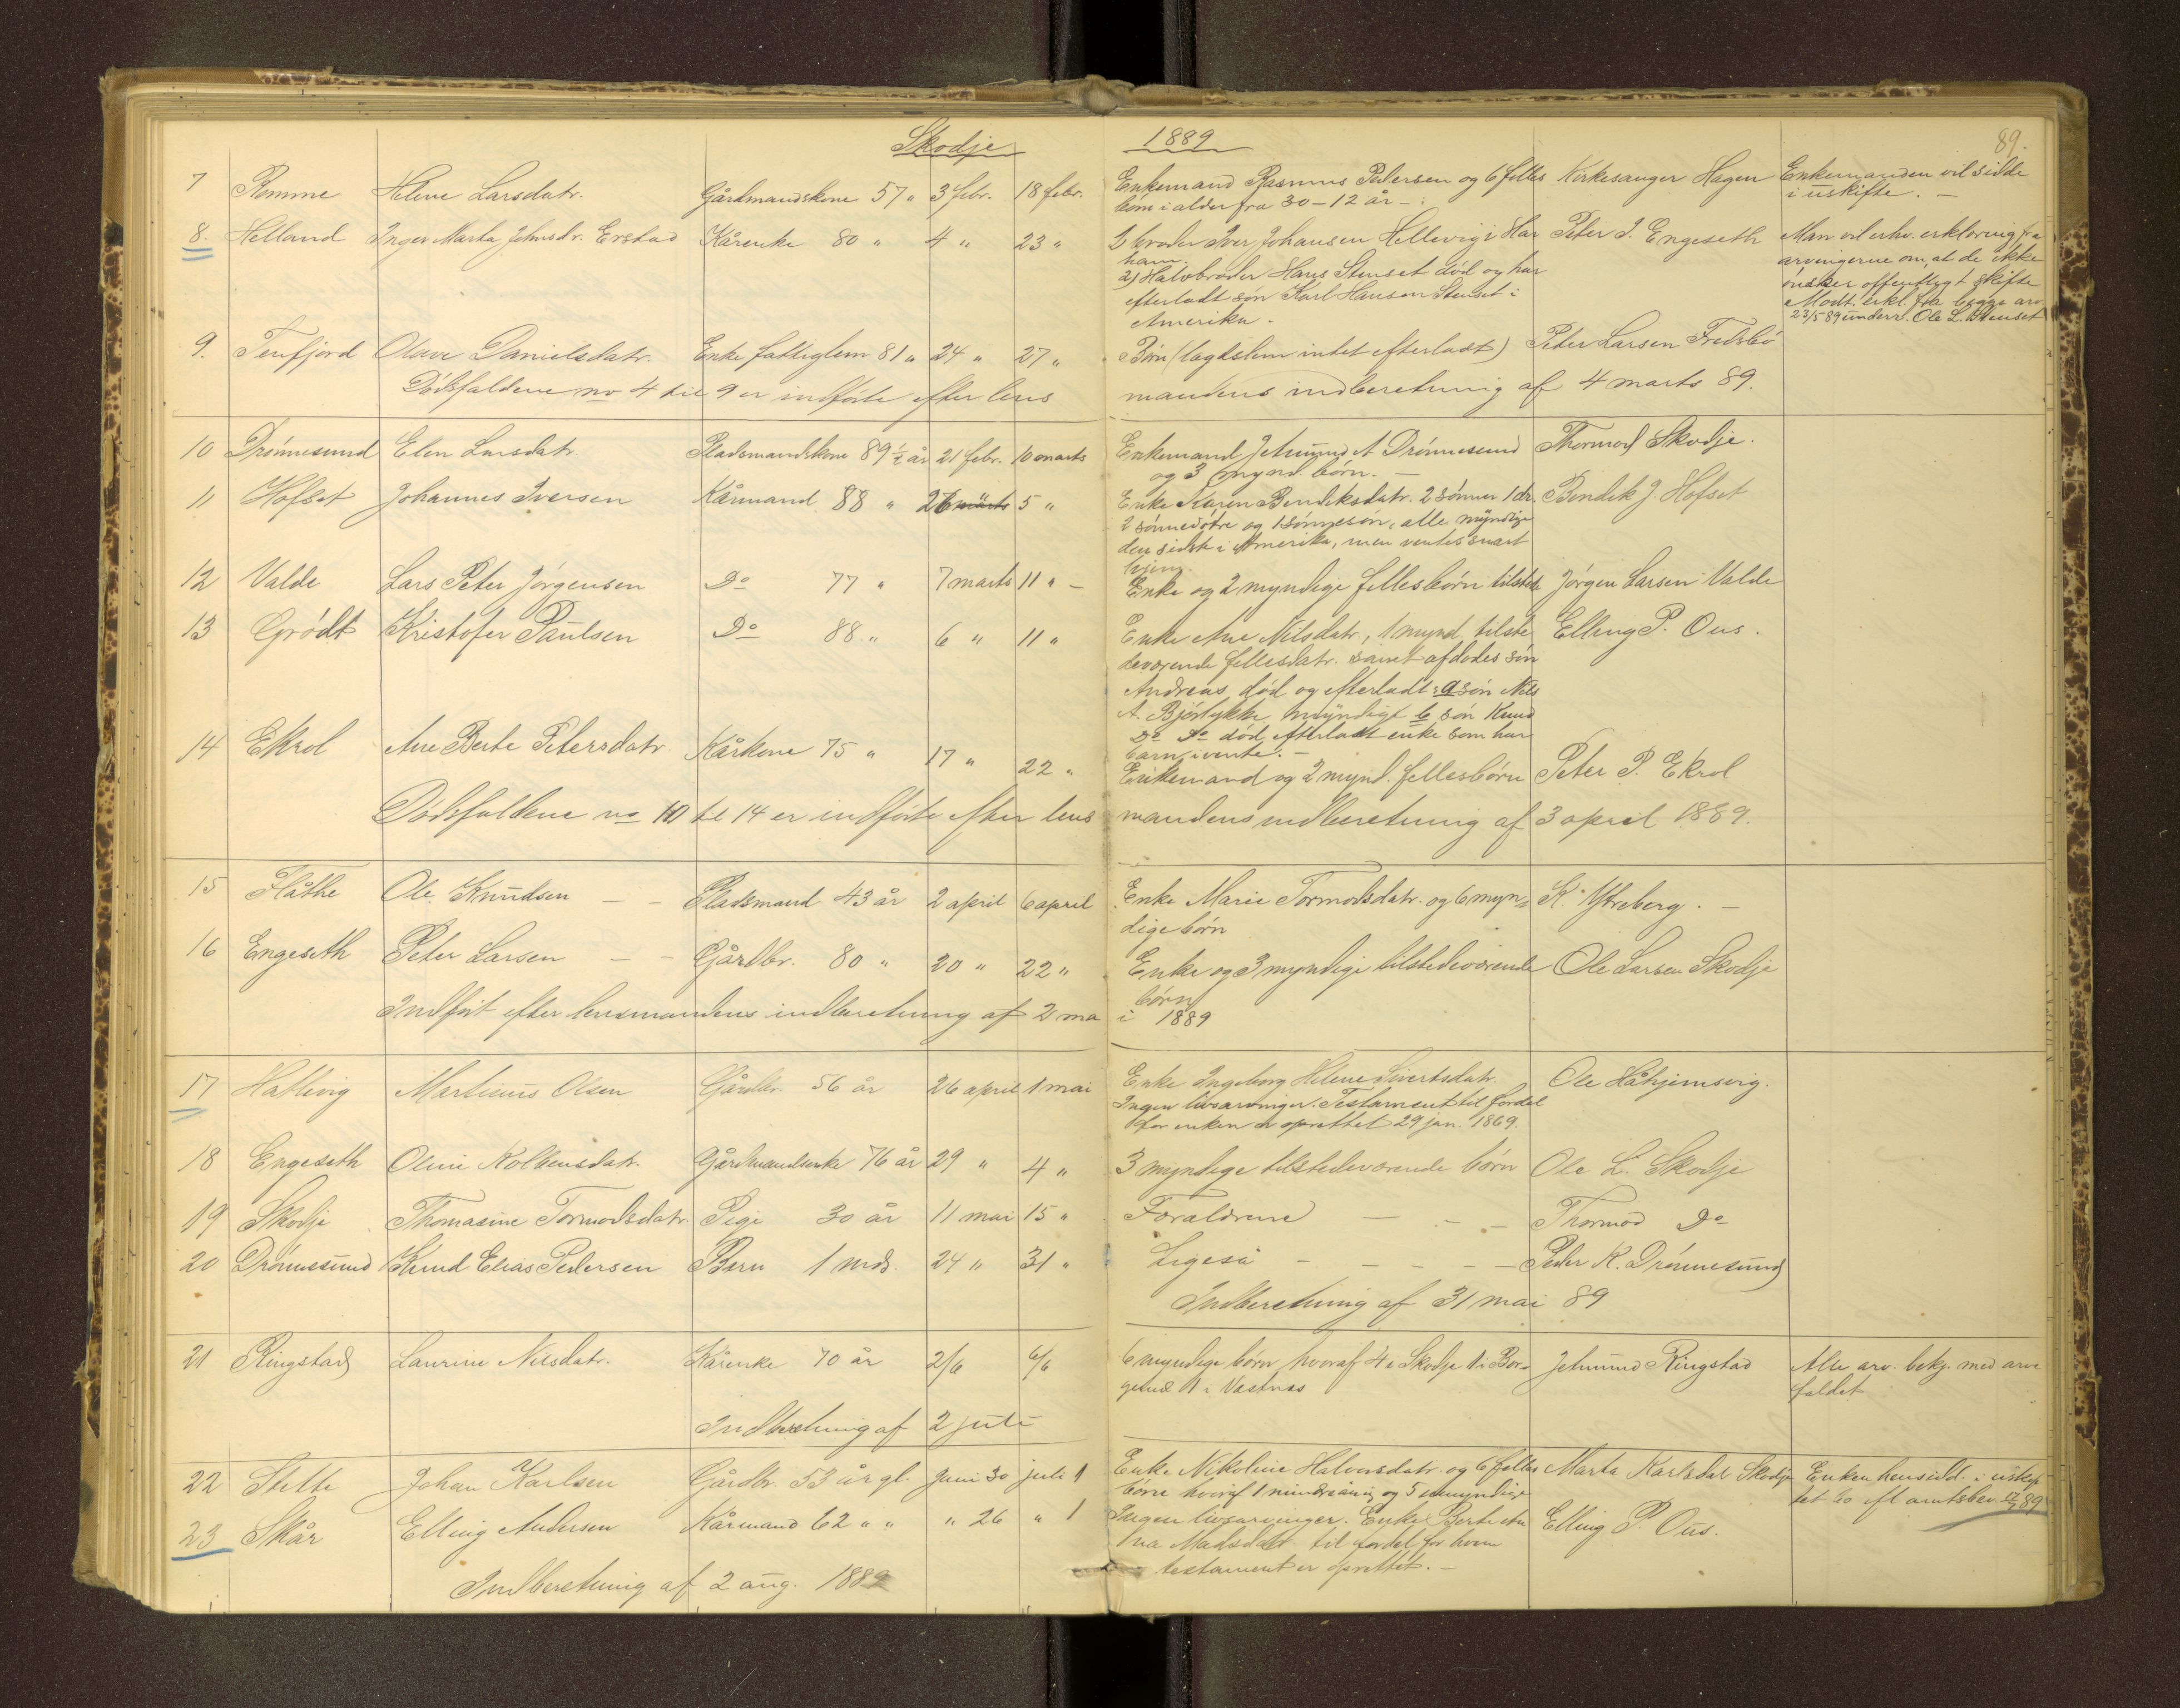 Skodje 1889 89.
7 Remme Helene Larsdatr. Gårdmandskone 57 " 3 febr. 18 febr. Enkemand Rasmus Pedersen og 6 felles Kirkesanger Hagen Enkemanden vil sidde
børn i alder fra 30 – 12 år – i uskifte. –
8. Helland Inger Marta Johnsdr. Erstad Kårenke 80 " 4 " 23 " broder Iver Johansen Hellevig i Har Peter J. Engeseth Man vil erhv. erklæring fra
ham. arvingerne om, at de ikke
2) Halvbroder Hans Stenset død og har ønsker offentligt skifte
efterladt søn Karl Hansen Stenset i Modt. erkl. fra begge arv.
Amerika. 23/5 89 underr. Ole L. Stenset
9. Tenfjord Olave Danielsdatr. Enke fattiglem 81 " 24 " 27 " Børn (lægdslem intet efterladt) Peter Larsen Fredsbø
Dødsfaldene no 4 til 9 er indførte efter lens mandens indberetning af 4 marts 89.
10 Drønnesund Elen Larsdatr. Pladsmandskone 89 1/2 år 21 febr. 10 marts Enkemand Jetmund A Drønnesund Thormod Skodje.
og 3 mynd. børn. –
11 Hofset Johannes Iversen Kårmand 88 " 26 marts 5 " Enke Karen Bendiksdatr. 2 sønner 1 dr. Bendik J Hofset
2 sønnedøtre og 1 sønnesøn, alle myndige
den sidste i Amerika, men ventes snart
hjem.
12 Valde Lars Peter Jørgensen Do 77 " 7 marts 11 " – Enke og 2 myndige fellesbørn tilstede Jørgen Larsen Valde
13 Grødt Kristofer Paulsen Do 88 " 6 " 11 " Enke Ane Nilsdatr., 1 mynd. tilste Elling P. Ous.
deværende fellesdatr. samt afdødes søn
Andreas død og efterladt: a søn Nils
A. Bjørlykke myndigt b søn Knud
Do Do død, efterladt enke som har
barn i vente. –
14 Ekrol Ane Berte Petersdatr. Kårkone 75 " 17 " 22 " Enkemand og 2 mynd. fellesbørn Peter P. Ekrol
Dødsfaldene no 10 til 14 er indførte efter lens mandens indberetning af 3 april 1889.
15 Flåthe Ole Knudsen – – Pladsmand 43 år 2 april 6 april Enke Marie Tormodsdatr. og 6 myn= K. Ytreberg. –
dige børn
16 Engeseth Peter Larsen – – Gårdbr. 80 " 20 " 22 " Enke og 3 myndige tilstedeværende Ole Larsen Skodje
børn
Indført efter lensmandens indberetning af 2 ma i 1889
17 Hatlevig Martinus Olsen Gårdbr. 56 år 26 april 1 mai Enke Ingeborg Helene Sivertsdatr. Ole Håhjemsvig.
Ingen livsarvinger. Testament til fordel
for enken er oprettet 29 jan. 1869.
18 Engeseth Oline Kolbensdatr. Gårdmandsenke 76 år 29 " 4 " 3 myndige tilstedeværende børn Ole L. Skodje
19 Skodje Thomasine Tormodsdatr. Pige 30 år 11 mai 15 " Foraldrene – – – Thormod Do
20 Drønnesund Knud Elias Pedersen Barn 1 mds. 24 " 31 " Ligeså – – – – – Peder K. Drønnesund
Indberetning af 31 mai 89
21 Ringstad Laurine Nilsdatr. Kårenke 70 år 2/6 6/6 6 myndige børn hvoraf 4 i Skodje 1 i Bor= Jetmund Ringstad Alle arv. bekj. med arve
gund 1 i Vestnes faldet
Indberetning af 2 juli
22 Stette Johan Karlsen Gårdbr. 53 år gl. Juni 30 juli 1 Enke Nikoline Halvorsdatr. og 6 felles Marta Karlsdat Skodje Enken hensidd. i uskif
børn hvoraf 1 mindreårig og 5 umyndige tet bo efl amtsbev. 89
23 Skår Elling Andersen Kårmand 62 " " " 26 " 1 Ingen livsarvinger. Enke Berte Elling P. Ous.
Madsdatr til fordel for hvem
testament er oprettet. –
Indberetning af 2 aug. 1889